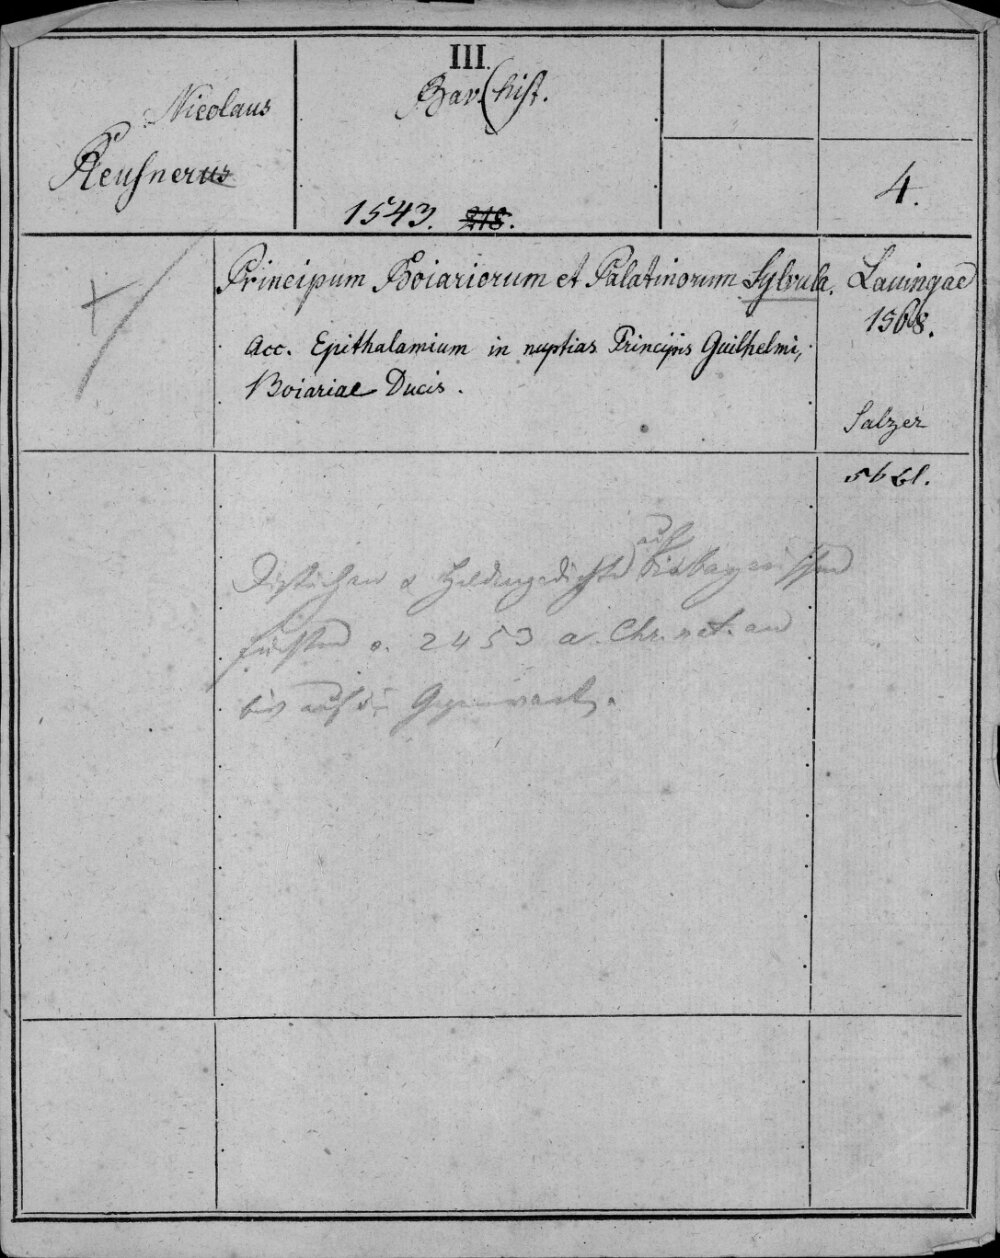 III.
Nicolaus
Reusnerus
Bav. hist.
1543. 218.
4.
Principum Boiariorum et Palatinorum Sylvula.
Acc. Epithalamium in nuptias Principis Guilhelmi,
Boiariae Ducis.
Lauingae
1568.
Salzer
56 bl.
Distichen & Heldengedichte auf die bayerischen
Fürsten v. 2453 a. Chr. nat. an
bis auf d. Gegenwart.